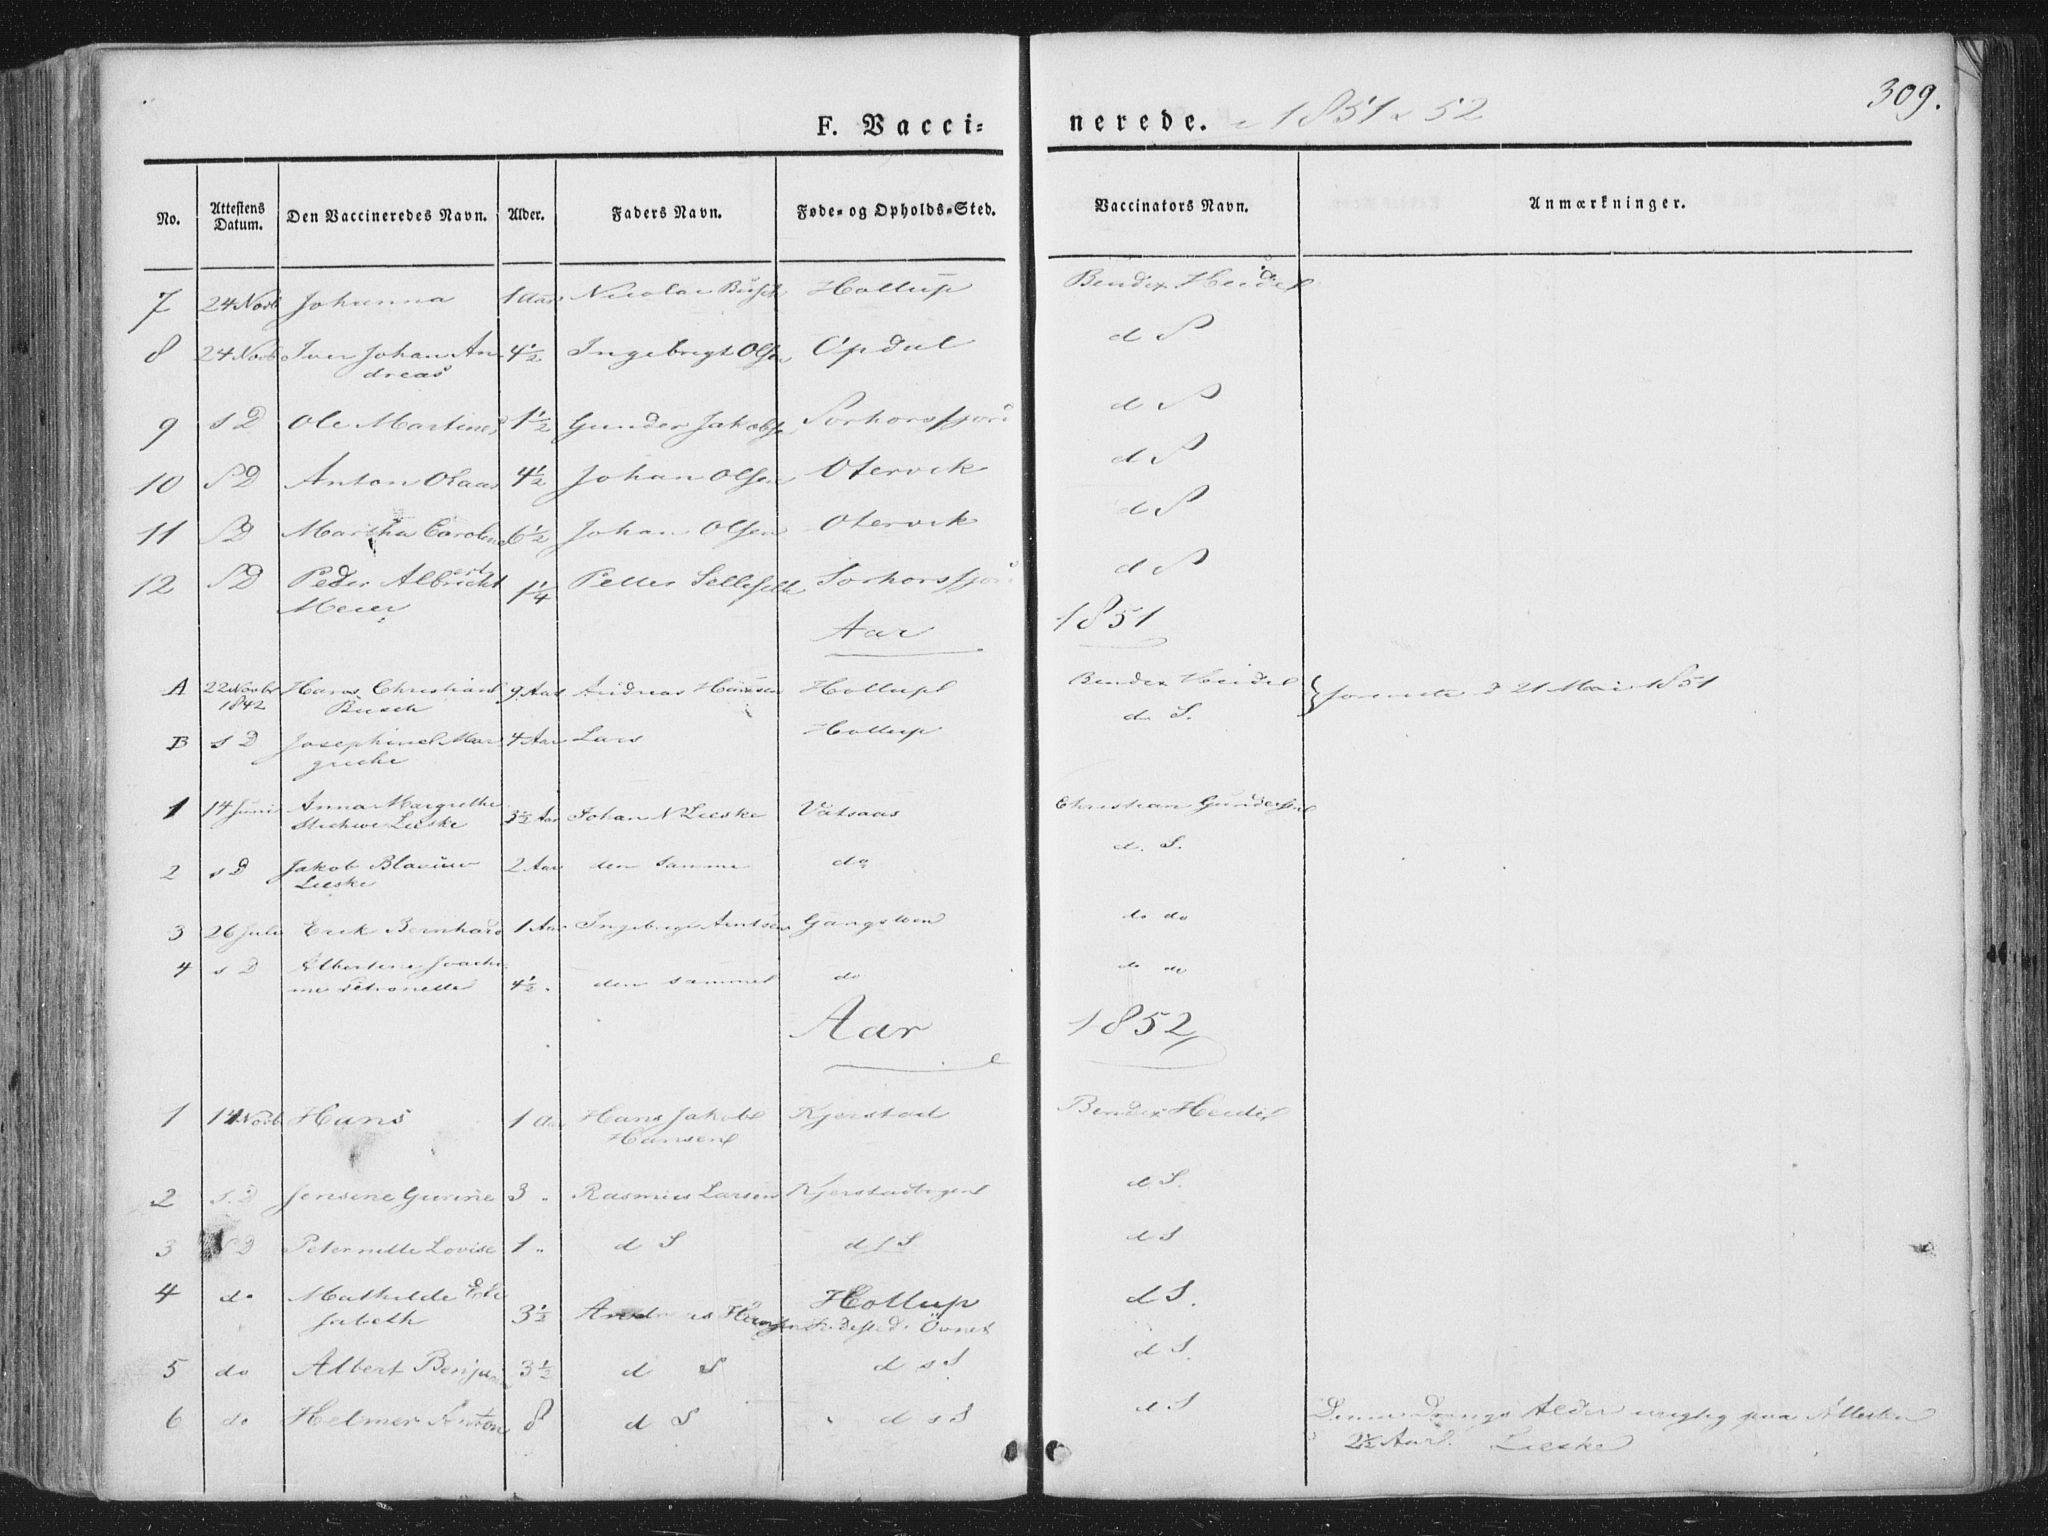 309.
F. Vacci= nerede. 1851 & 52
No. Attestens Datum. Den Vaccineredes Navn. Alder. Faders Navn. Føde- og Opholds-Sted. Vaccinators Navn. Anmærkninger.
7 24 Novb Johanna 1 Aar Nicolai Busch Hollup Bendix Heidel
8 24 Novb Iver Johan An 4½ Ingebrigt Olsen Opdal d S
dreas
9 s D Ole Martines 1½ Gunder Jakobs Sorhorsfjord d S
10 S D Anton Olaas 4½ Johan Olsen Otervik d S
11 S D Martha Caroline 6½ Johan Olsen Otervik d S
12 S D Peder Albricht ert 1¼ Petter Sorhorsfjor d S
Meier
Aar 1851
A 22 Novbr 1842 Hans Christian 9 Aar Andreas Hansen Hollup Bendix Heidel } d 21 Mai 1851
Busch
B s D Josephine Mar 4 Aar Lars Hollup d. S.
grethe
1 14 Juni Anna Margrethe 3½ Aar Johan N Lieske Vatsaas Christian Gundersen
Lieske
2 s D Jakob Blauuw 2 Aar den Samme do d. S.
Lieske
3 26 Juli Erik Bernhard 1 Aar Ingebrigt Arntsen Gangstoen do do
4 s D Albertine Joachi 4½ . den samme do do do
me Petronelle
Aar 1852
1 14 Novb Hans 1 Aar Hans Jakob Kjerstad Bendix Heidel
Hansen
2 s. D Jensine Gurine 3 " Rasmus Larsen Kjerstad d S.
3 S D Peternelle Lovise 1 " d S d s S d S
4 do Mathilde Eli 3½ Andreas Hansen Hollup d S.
sabeth Födested: Övnet
5 do Albert Benja 3½ d S d s S d S.
6 do Helmer Anton 8 d S d s S d S Denne Drengs Alder urigtig paa Attesten
2½ Aar. Lieske